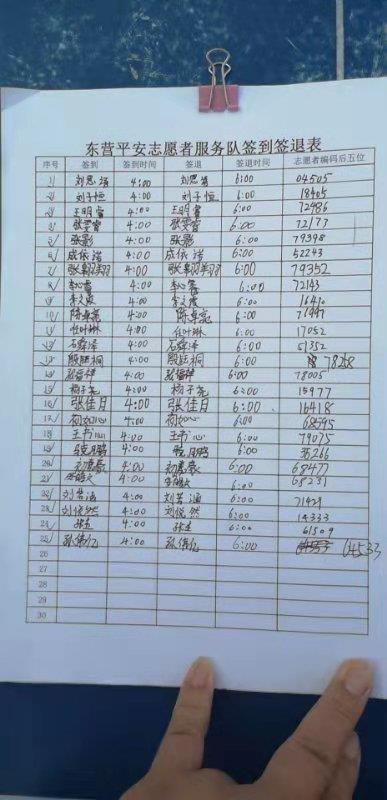 东营平安志愿者服务队签到签退表
序号 签到 签到时间 签退 签退时间 志愿者编码后五位
1 刘思涵 4:00 刘思涵 6:00 04505
2 刘子恒 4:00 刘子恒 6:00 18405
3 王明睿 4:00 王明睿 6:00 72986
4 张雯睿 4:00 张雯睿 6:00 72173
5 张影 4:00 张影 6:00 79398
6 成依诺 4:00 成依诺 6:00 52243
7 张翱翔 4:00 张翱翔 6:00 79352
8 4:00 6:00 72143
9 李文霞 4:00 李文霞 6:00 16410
10 陈卓亮 4:00 陈卓亮 6:00 71997
11 任叶琳 4:00 任叶琳 6:00 17052
12 石舜泽 4:00 石舜泽 6:00 51352
13 殷廷桐 4:00 殷廷桐 6:00 78258
14 4:00 6:00 78005
15 杨子尧 4:00 杨子尧 6:00 15977
16 张佳月 4:00 张佳月 6:00 16418
17 初如心 4:00 初如心 6:00 68595
18 王书心 4:00 王书心 6:00 79075
19 4:00 6:00 36266
20 4:00 6:00 68477
21 4:00 6:00 68251
22 刘芸涵 4:00 刘芸涵 6:00 71429
23 刘悦然 4:00 刘悦然 6:00 14333
24 4:00 6:00 61509
25 孙伟亿 4:00 孙伟亿 6:00 64533
26
27
28
29
30